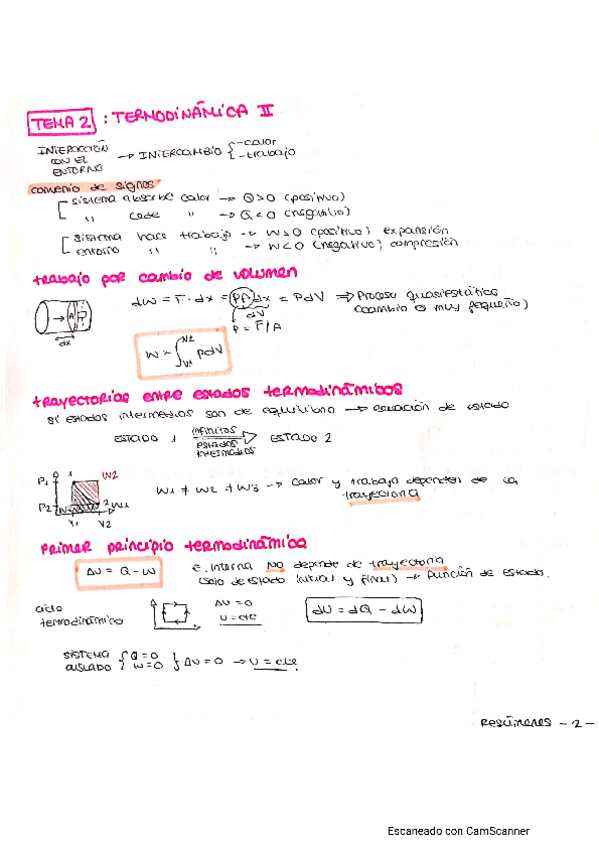 TEMA 2 : TERMODINÁMICA II
INTERACCIÓN CON EL ENTORNO → INTERCAMBIO { -calor -trabajo
convenio de signos
sistema absorbe calor → Q>0 (positivo)
" cede " → Q<0 (negativo)
sistema hace trabajo → W>0 (positivo) expansión
entorno " " → W<0 (negativo) compresión
trabajo por cambio de volumen
dW = F·dx = PAdx = PdV ⇒ Proceso quasiestático
dV
P = F/A
A
dx
W = ∫ V1 V2 PdV
trayectorias entre estados termodinámicos
si estados intermedios son de equilibrio → ecuación de estado
ESTADO 1 infinitos estados intermedios ESTADO 2
P1 1 W2
P2 2 W1
V1 V2
W1 ≠ W2 ≠ W3 → calor y trabajo dependen de la trayectoria
PRIMER principio termodinámica
ΔU = Q - W
E. interna NO depende de trayectoria
(solo de estado inicial y final) → función de estado.
ciclo termodinámico
ΔU = 0
U = cte
dU = dQ - dW
SISTEMA AISLADO { Q=0 W=0 } ΔU = 0 → U = cte.
RESÚMENES - 2 -
Escaneado con CamScanner